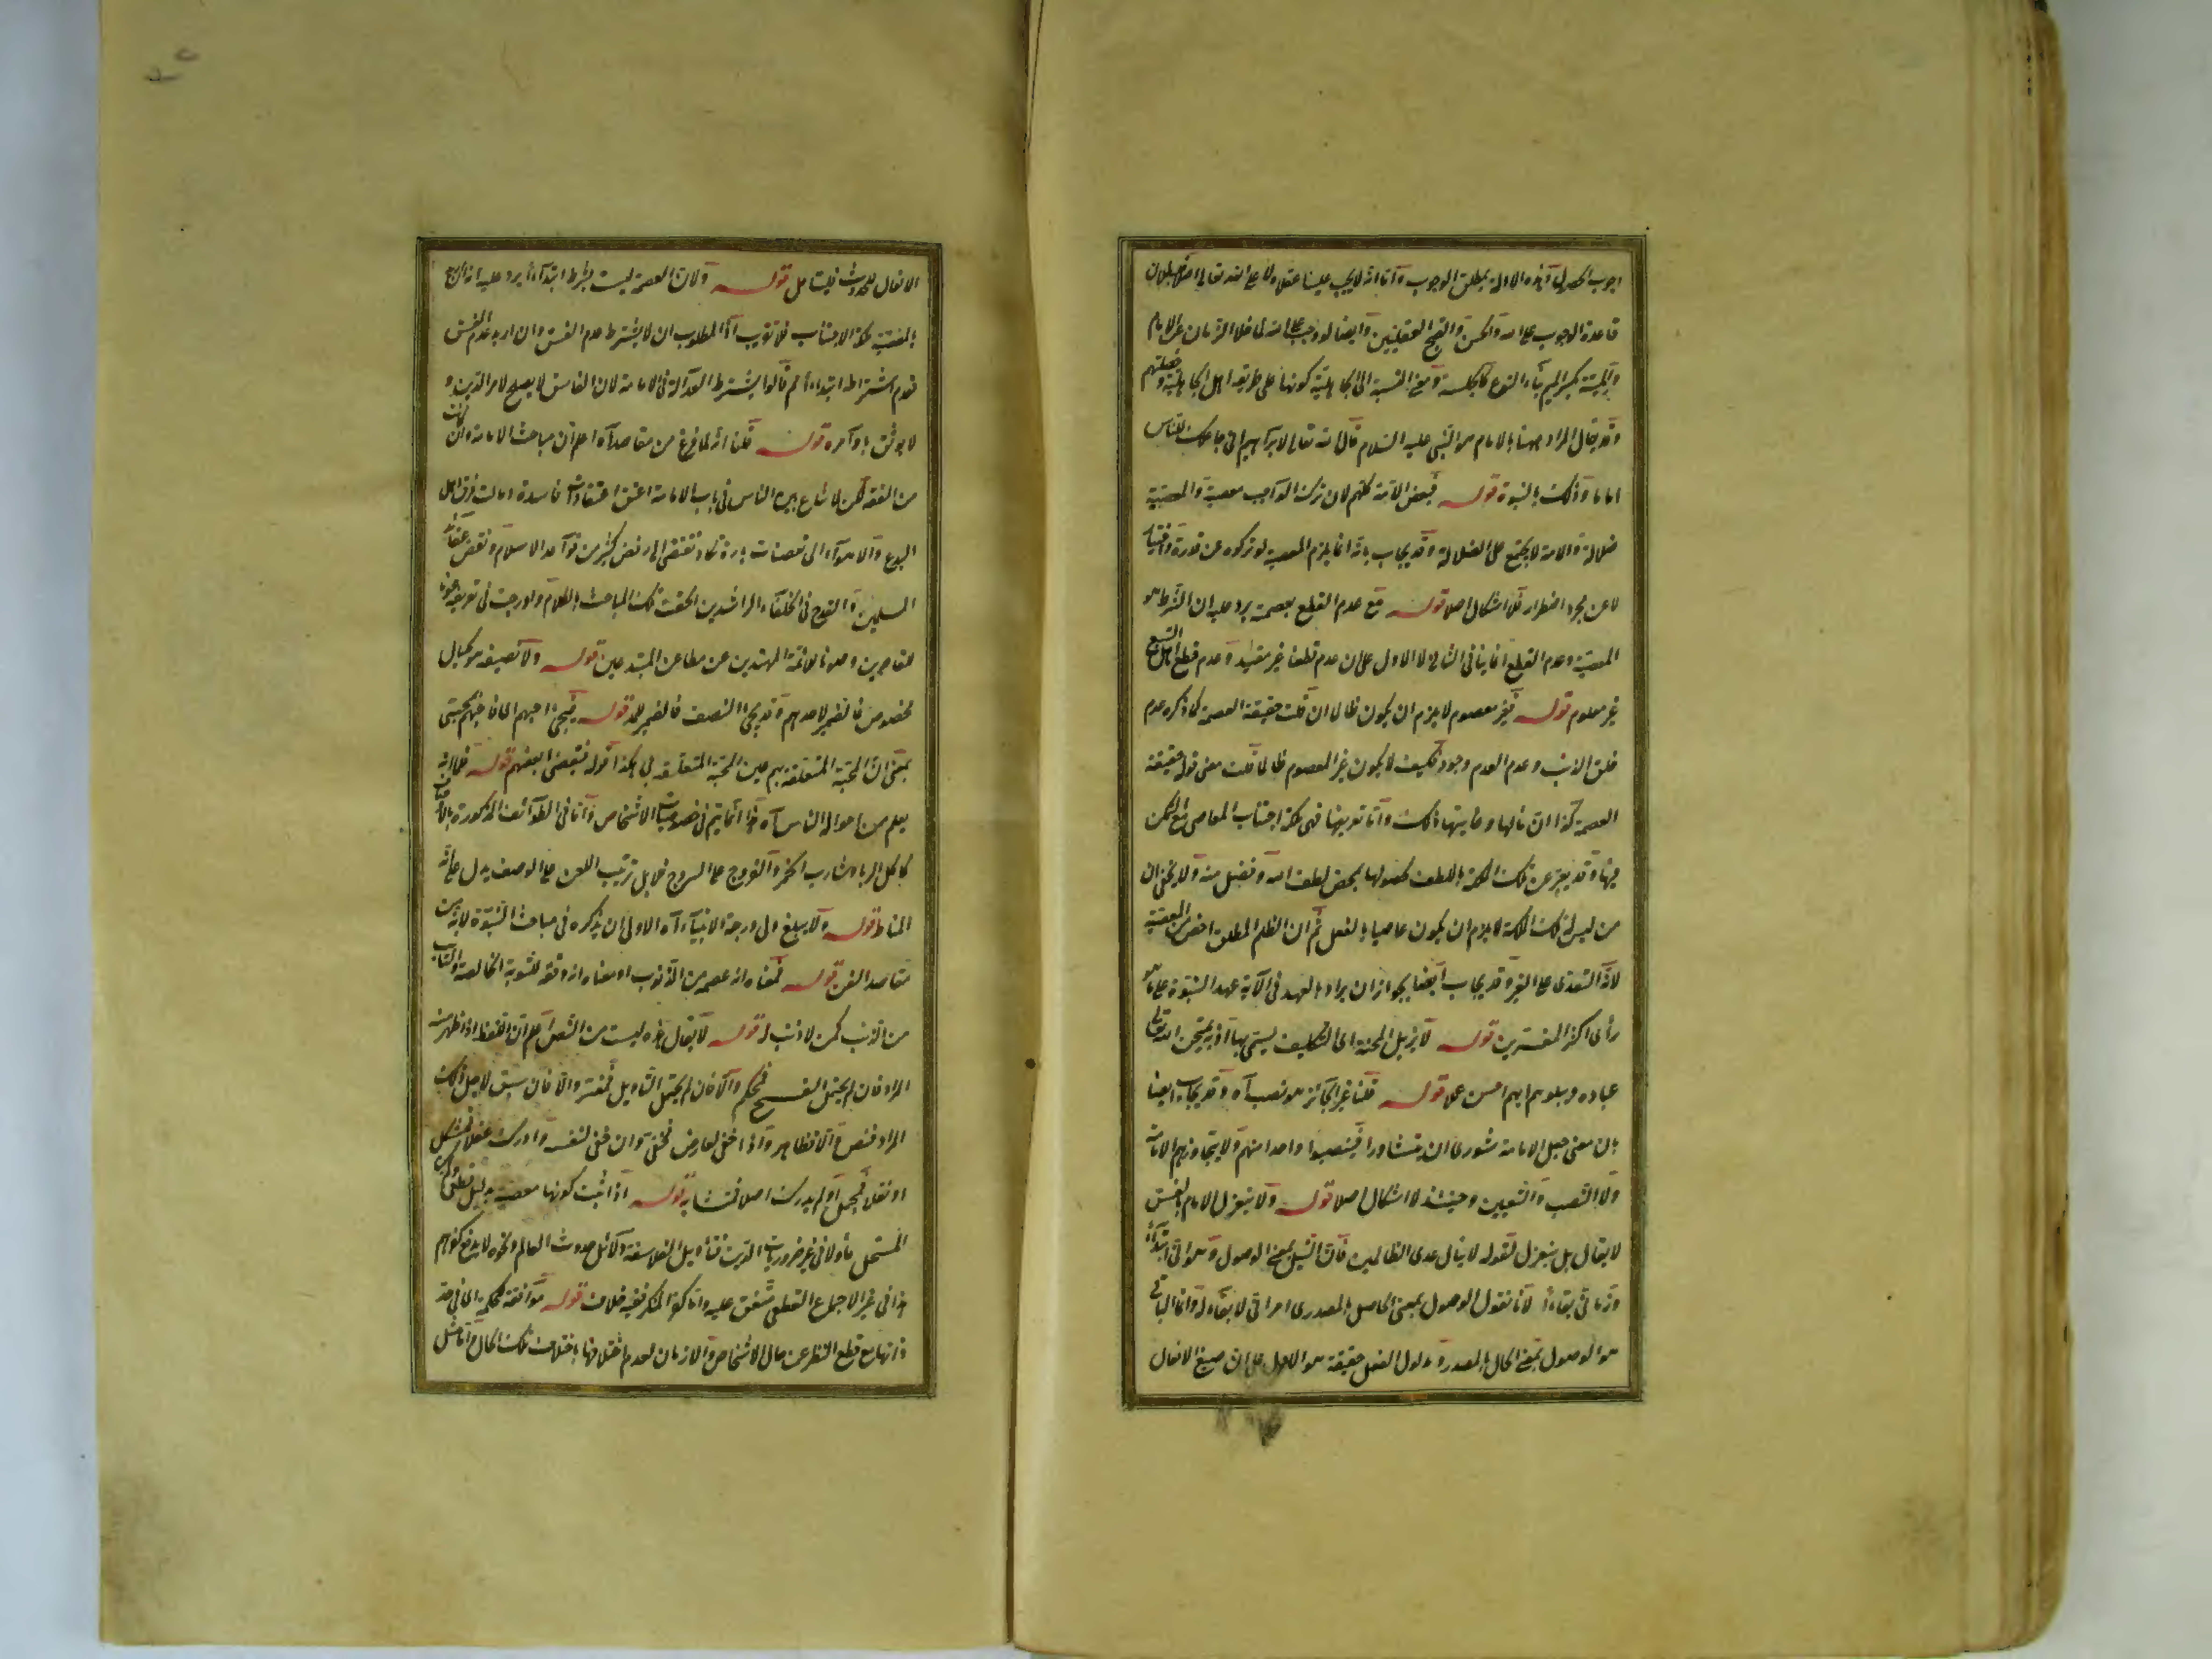 وجوب المعرفة وهذه الادلة لمطلق الوجوب وأما انه لا يجب علينا عقلا ولا على الله تعالى اصلا فلبطلان
قاعدة الوجوب على الله والحسن والقبح العقليين وايضا لو وجب على الله لما خلا الزمان عن الامام
والميتة بكسر الميم بناء النوع كالجلسة ومعنى النسبة الى الجاهلية كونها على طريقة اهل الجاهلية وخصلتهم
وقد يقال المراد ههنا بالامام هو النبى عليه السلام قال الله تعالى لابراهيم انى جاعلك للناس
اماما وذلك بالنبوة قوله فيعصى الامة كلهم لان ترك الواجب معصية والمعصية
ضلالة والامة لا يجتمع على الضلالة وقد يجاب بانه انما يلزم المعصية لو تركوه عن قدرة واختيار
لا عن عجز واضطرار فلا اشكال اصلا قوله مع عدم القطع بعصمته يرد عليه ان الشرط هو
العصمة وعدم القطع انما ينافى الثانى لا الاول على ان عدم قطعنا غير مفيد وعدم قطع اهل البيعة
غير معلوم قوله فغير معصوم لا يلزم ان يكون ظالما ان قلت حقيقة العصمة كما ذكره عدم
خلق الذنب وعدم العدم وجود فكيف لا يكون غير المعصوم ظالما قلت معنى قوله حقيقة
العصمة كذا ان مآلها وغايتها ذلك وأما تعريفها فهى ملكة اجتناب المعاصى مع التمكن
منها وقد يعبر عن تلك الملكة باللطف لحصولها بمحض لطف الله وفضل منه ولا يخفى ان
من ليس له تلك الملكة لا يلزم ان يكون عاصيا بالفعل ثم ان الظلم المطلق اخص من المعصية
لانه التعدى على الغير وقد يجاب ايضا بجواز ان يراد بالعهد فى الآية عهد النبوة على ما هو
رأى اكثر المفسرين قوله لا يزيل المحنة اى التكليف يسمى بها اذ به يمتحن الله تعالى
عباده ويبلوهم ايهم احسن عملا قوله قلنا غير الجائز هو نصب آه وقد يجاب ايضا
بان معنى جعل الامامة شورى ان يتشاوروا فينصبوا واحدا منهم ولا يتجاوزهم الامامة
ولا النصب والتعيين وحينئذ لا اشكال اصلا قوله ولا ينعزل الامام بالفسق
لا يقال بل ينعزل لقوله لا ينال عهدى الظالمين فان النيل بمعنى الوصول وهو آنى ابتداء
وزمانى بقاء لانا نقول الوصول بمعنى الحاصل بالمصدر امر آنى لا بقاء له وانما الباقى
هو الوصول بمعنى الحال بالمصدر ومدلول الفعل حقيقة هو الاول على ان صيغ الافعال
الافعال للحدوث فليتأمل قوله ولان العصمة ليست بشرط ابتداء يرد عليه انه ان اريد
بالعصمة ملكة الاجتناب فلا تقريب اذ المطلوب ان لا يشترط عدم الفسق وان اريد عدم الفسق
فعدم اشتراطه ابتداء ثم قالوا يشترط العدالة فى الامامة لان الفاسق لا يصلح لامر الدين و
لا يوثق باوامره قوله قلنا انه لما فرغ من مقاصد آه اعلم ان مباحث الامامة وان كانت
من الفقه لكن لما شاع بين الناس فى باب الامامة اعتقادات فاسدة ومالت فرق اهل
البدع والاهواء الى تعصبات باردة تكاد تفضى الى رفض كثير من قواعد الاسلام ونقض عقائد
المسلمين والقدح فى الخلفاء الراشدين الحقت تلك المباحث بالكلام وادرجت فى تعريفه عونا
للقاصرين وصونا للائمة المهتدين عن مطاعن المبتدعين قوله ولا نصيفه هو مكيال
مخصوص فالضمير لاحدهم وقد يجئ النصف فالضمير للمد قوله فبحبى احبهم اى فاحبهم بحبى
بمعنى ان المحبة المتعلقة بهم عين المحبة المتعلقة بى وهكذا قوله فببغضى ابغضهم قوله فلما انه
يعلم من احوال الناس آه هذا انما يتم فى خصوصيات الاشخاص وأما فى الطوائف المذكورة بالاوصاف
كآكل الربا وشارب الخمر والفروج على السروج فلا بل ترتيب اللعن على الوصف يدل على انه
المناط قوله ولا يبلغ ولى درجة الانبياء آه الاولى ان يذكره فى مباحث النبوة لانه من
مقاصد الفن قوله فمعناه انه عصمه من الذنوب او معناه انه وفقه للتوبة الخالصة والتائب
من الذنب كمن لا ذنب له قوله لا يقال هذه ليست من النص اعلم ان اللفظ اذا ظهر منه
المراد فان لم يحتمل النسخ فمحكم والا فان لم يحتمل التأويل فمفسر والا فان سيق لاجل ذلك
المراد فنص والا فظاهر واذا خفى لعارض فخفى وان خفى لنفسه وادرك عقلا فمشكل
او نقلا فمجمل او لم يدرك اصلا فمتشابه قوله اذا ثبت كونها معصية بدليل قطعى ولم يكن
المستحل مأولا فى غير ضروريات الدين فتأويل الفلاسفة دلائل حدوث العالم ونحوه لا يدفع كفرهم
هذا فى غير الاجماع القطعى متفق عليه وأما كفر المنكر ففيه خلاف قوله موافقة للحكمة اى فى حد
ذاتها مع قطع النظر عن حال الاشخاص والازمان لعدم اختلافها باختلاف تلك الحال وأما مثل